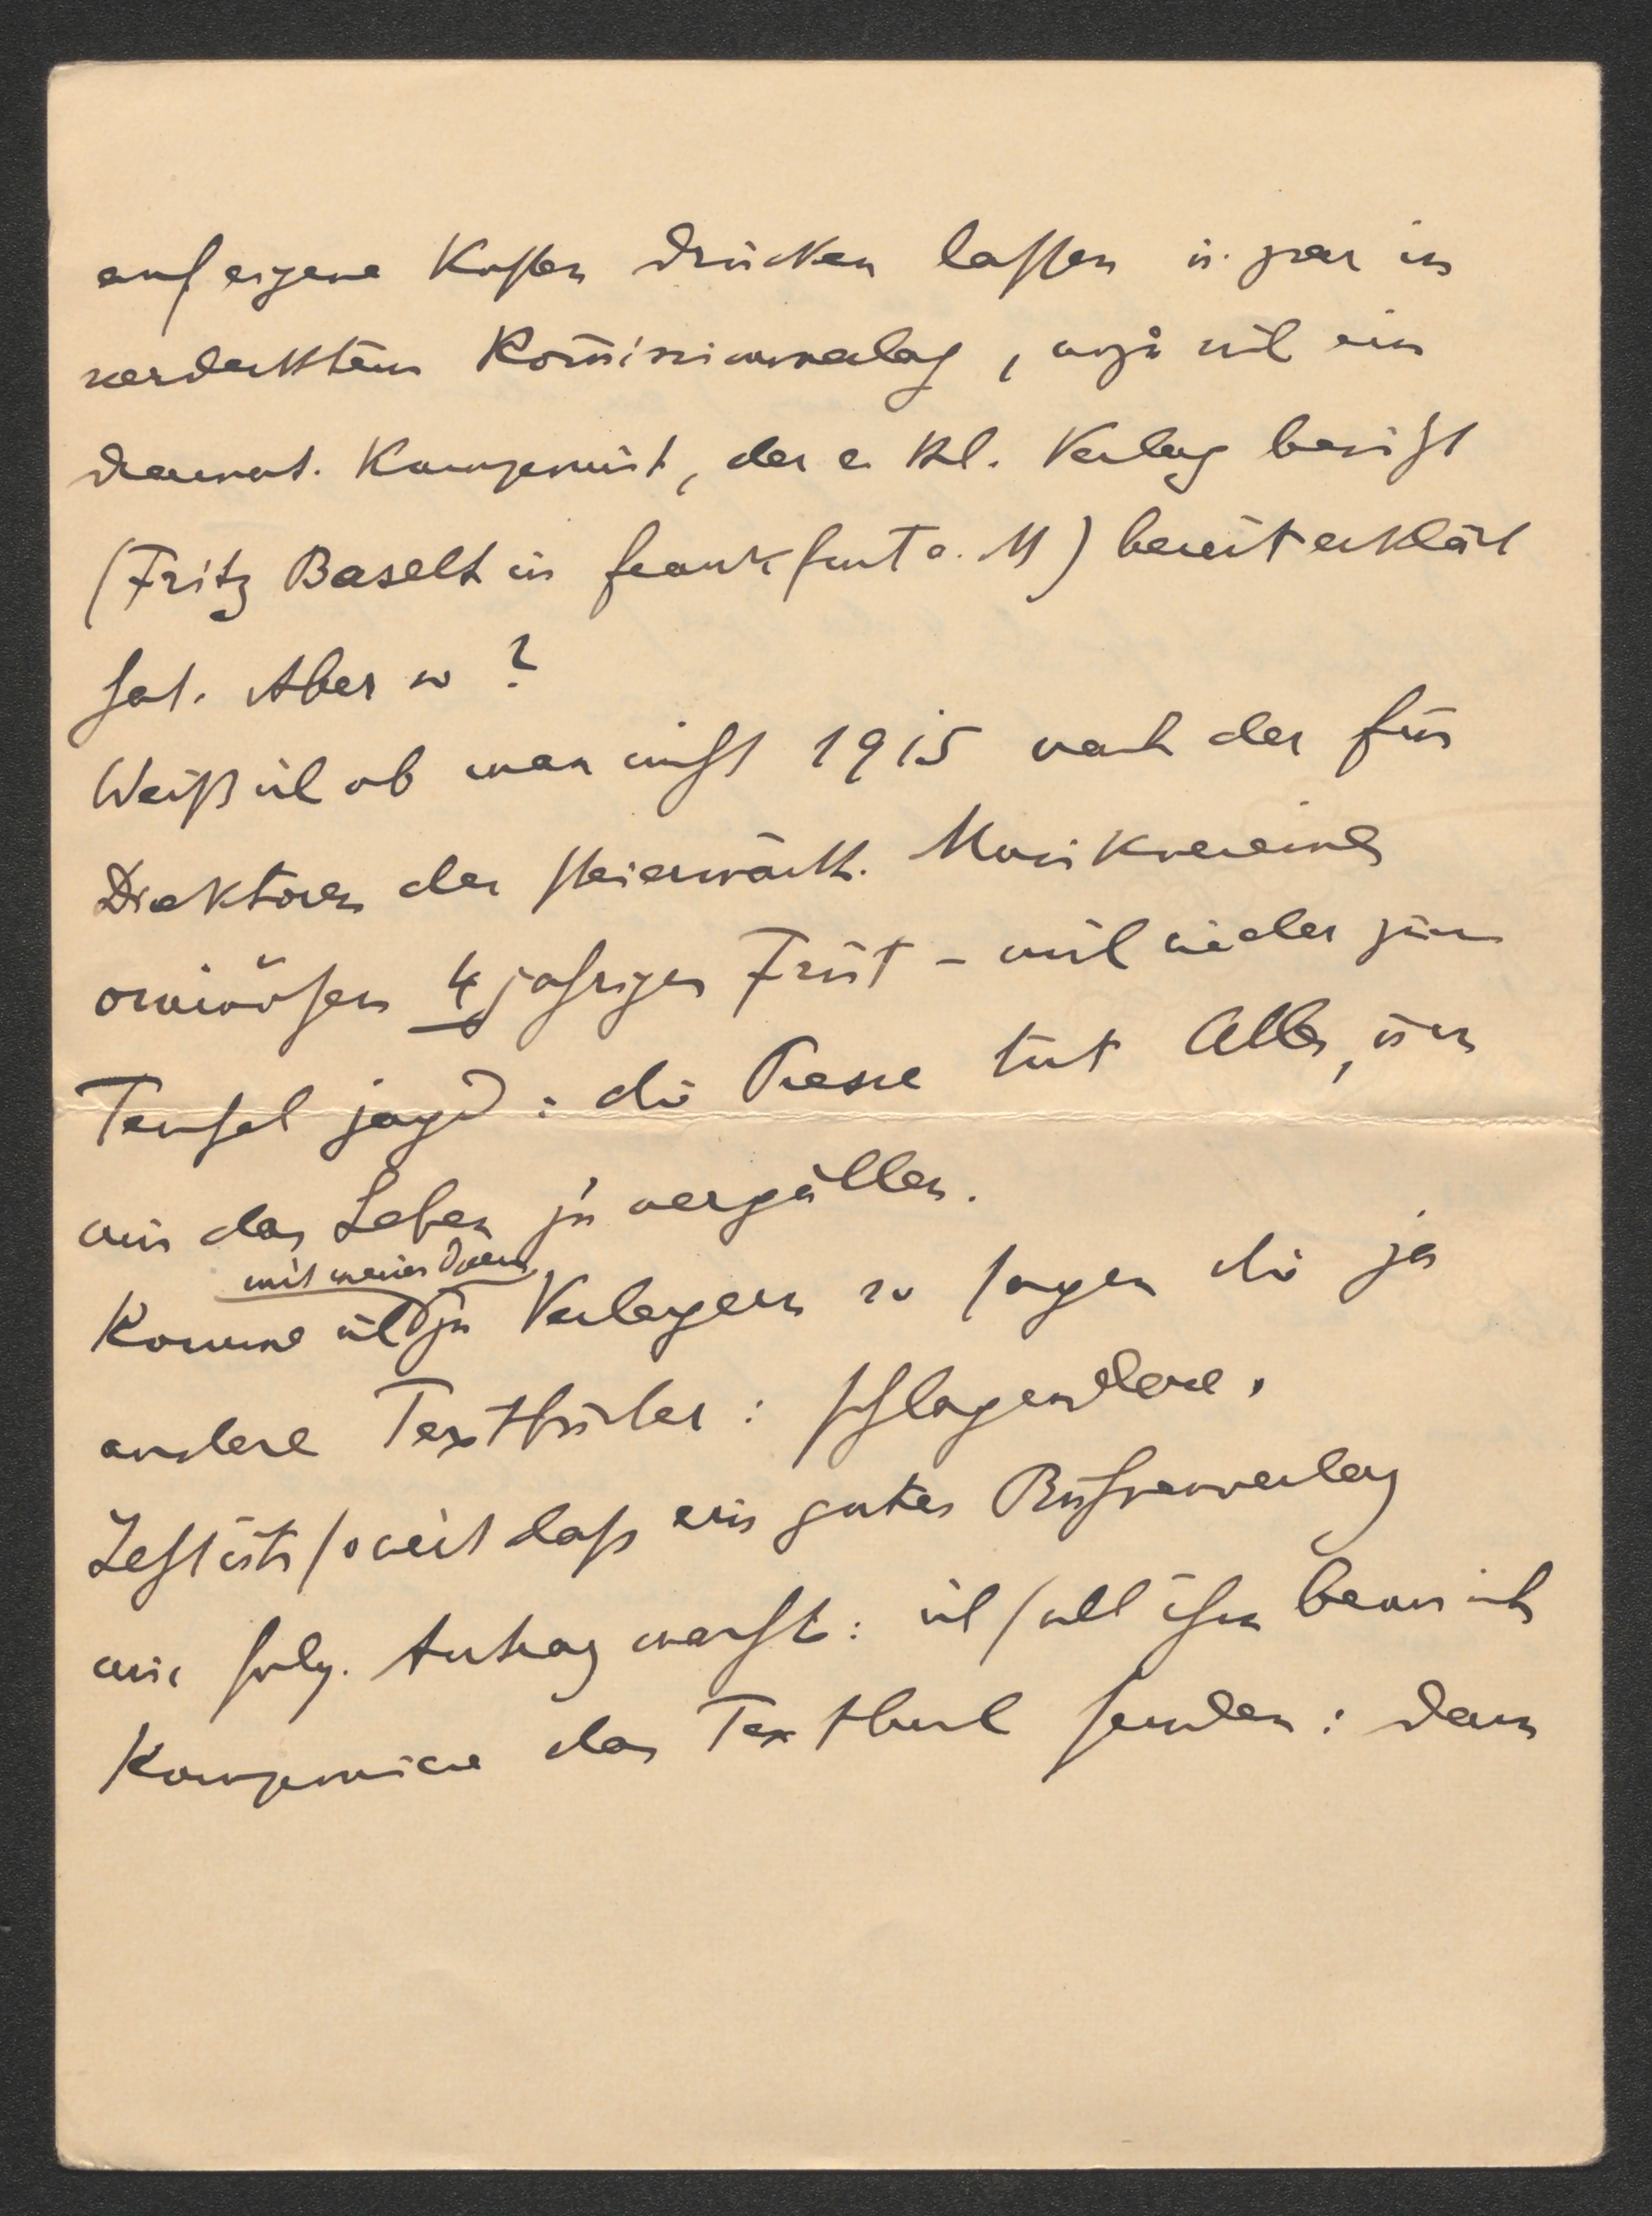 auf eigene Kosten drucken lassen u. zwar in
verdecktem Kom̄issionsverlag, wozu sich ein
dramat. Komponist, der e. kl. Verlag besitzt
(Fritz Baselt in Frankfurt a. M) bereit erklärt
hat. Aber so?
Weiß ich ob man nicht 1915 nach der für
Direktoren des steiermärk. Musikvereines
ominösen 4 jährigen Frist – mich wieder zum
Teufel jagd: die Presse tut Alles, um
mir das Leben zu vergällen.
mit meinen Opern
Komme ich zu Verlegern so sagen die ja
andere Textbücher: schlagendere.
Jetzt ists soweit dass ein guter Bühnenverlag
mir folg. Antrag macht: ich soll ihm bevor ich
komponiere das Textbuch senden: dann